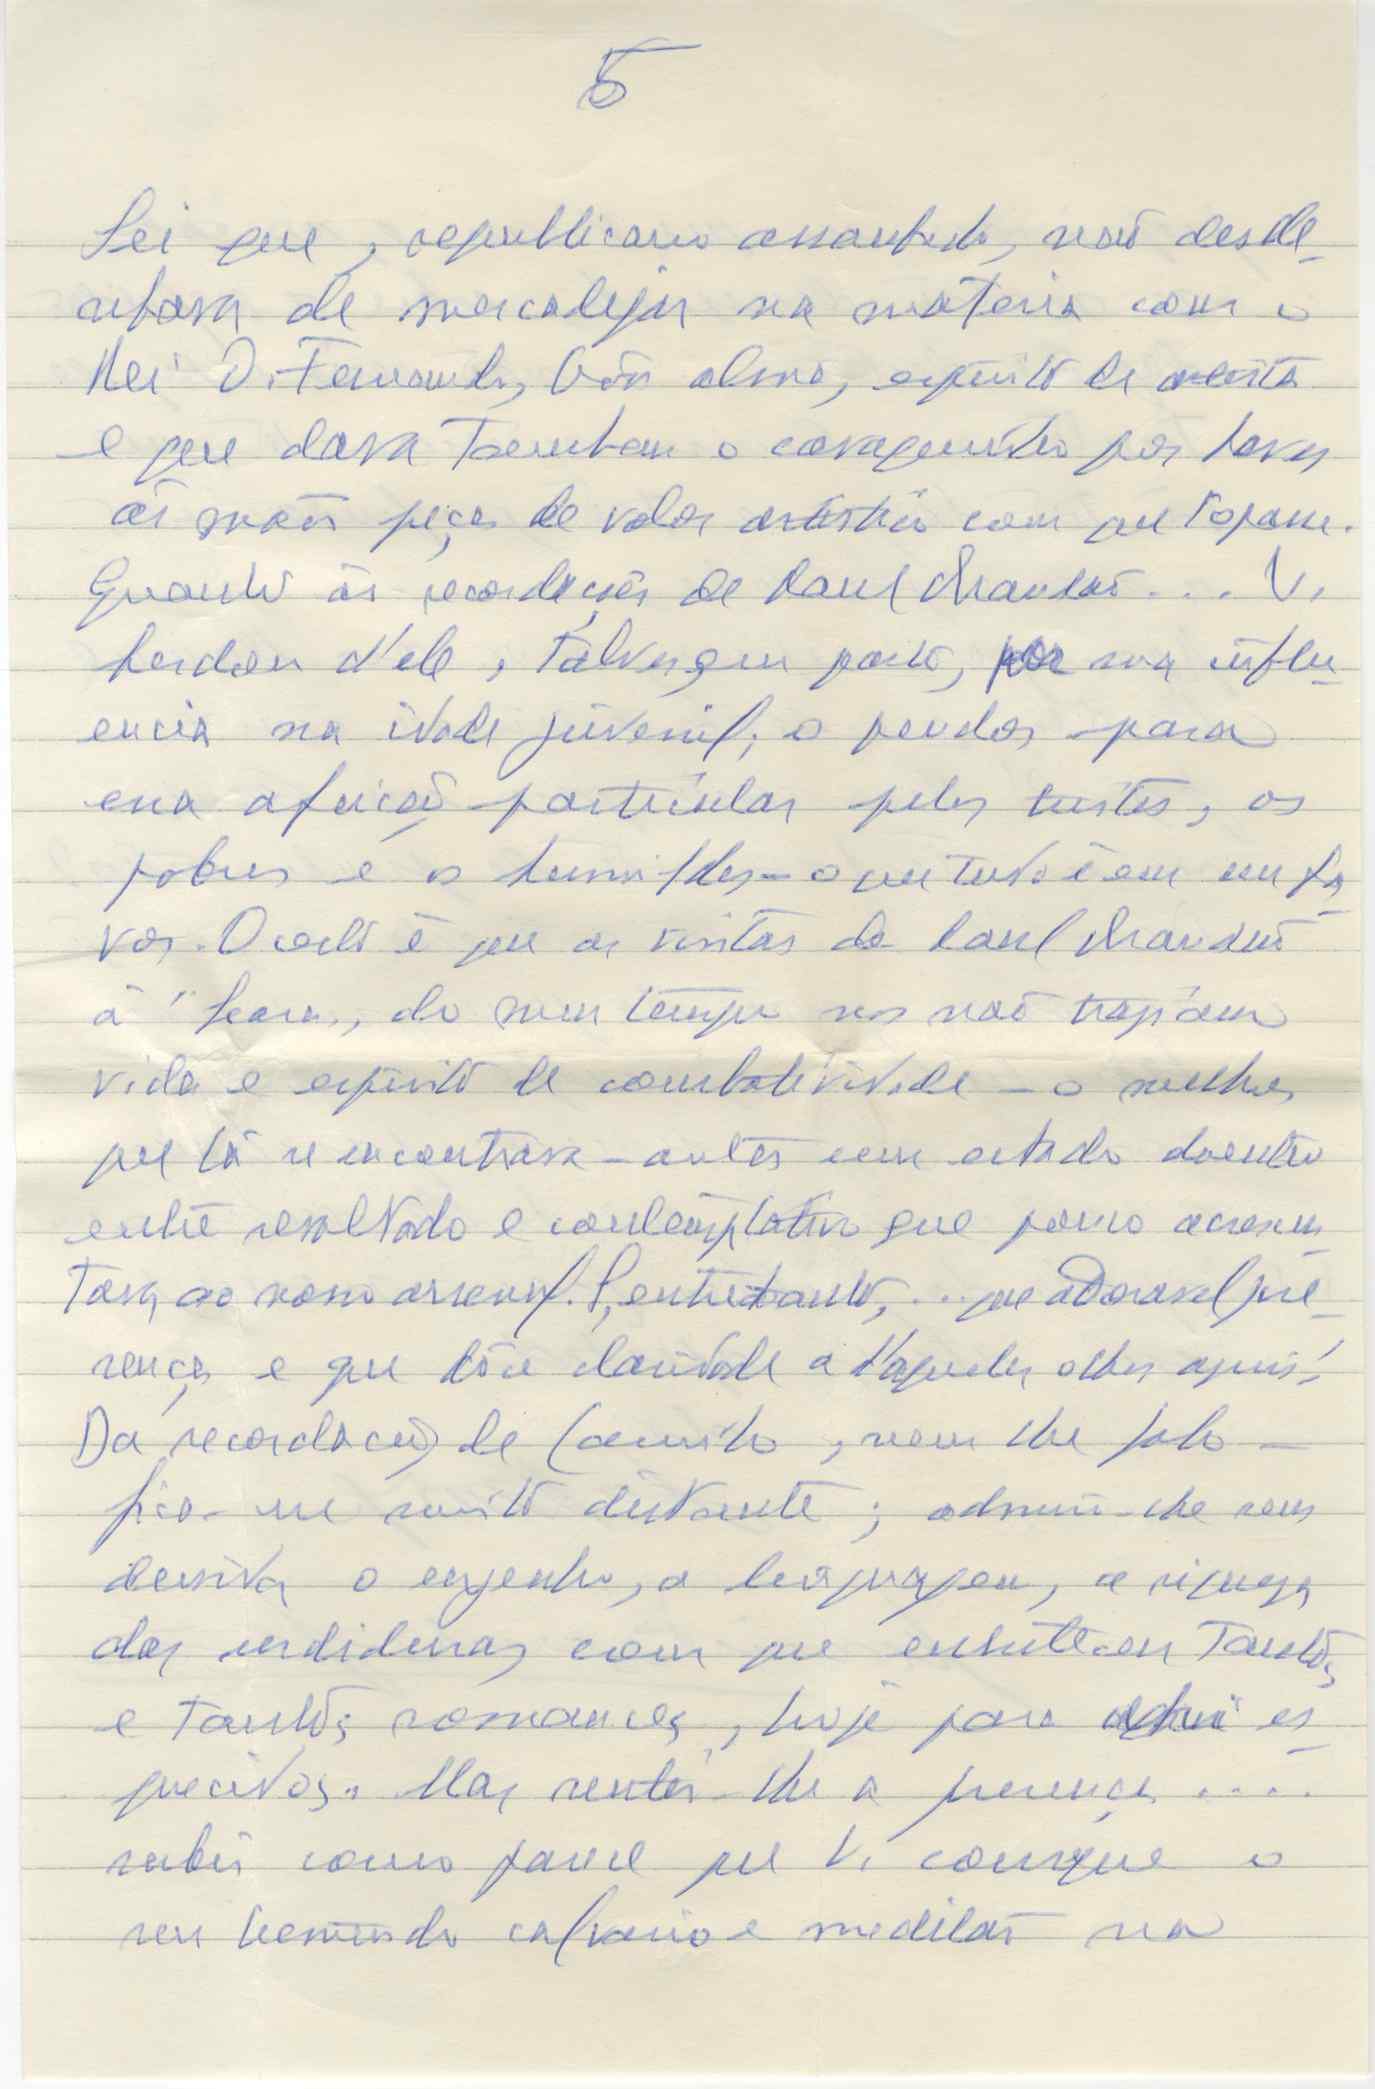 5
Sei que, republicano assanhado, não desde-
nhava de mercadejar na matéria com o
Rei D. Fernando, bôa alma, espirito de artista
e que dava tambem o cavaquinho por haver
ás mãos peças de valor artistico com que topasse.
Quanto ás recordações de Raul Brandão... V.
herdou d'ele, talvez em parte, por sua influ-
encia na idade juvenil, o pendor para
essa afeição particular pelos tristes, os
pobres e os humildes – o que tudo é em seu fa-
vor. O certo é que as visitas de Raul Brandão
á "Seara", do meu tempo nos não traziam
vida e espirito de combatividade – o melhor
que lá se encontrava – antes um estado doentio
entre revoltado e contemplativo que pouco acrescen-
tava ao nosso arsenal. E, entretanto, ... que adoravel pre-
sença e que dôce claridade a d'aqueles olhos azuis!
Da recordação de Camilo, nem lhe falo –
fica-me muito distante; admiro-lhe sem
duvida o engenho, a linguagem, a riqueza
das urdiduras com que entreteceu tantos
e tantos romances, hoje para es-
quecidos. Mas sentir-lhe a presença ....
subir como parece que V. consegue o
seu tremendo calvario e meditar na